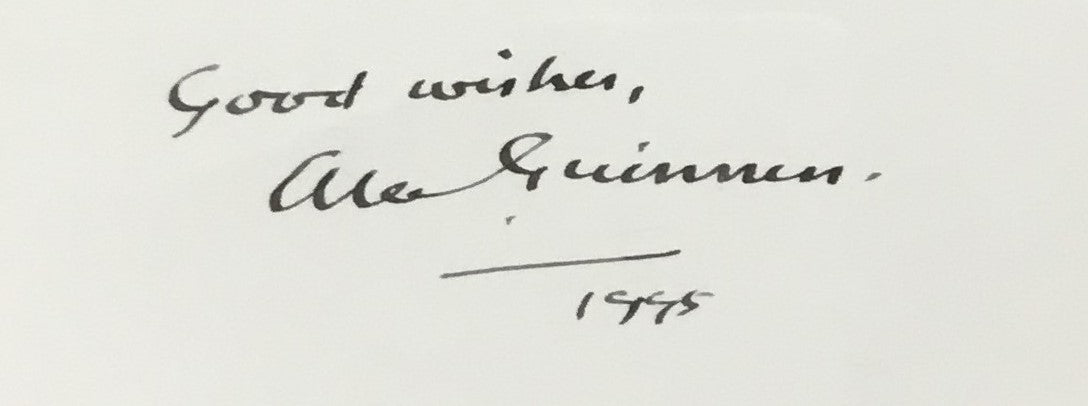 Good wishes,
Alec Guinness.
1995